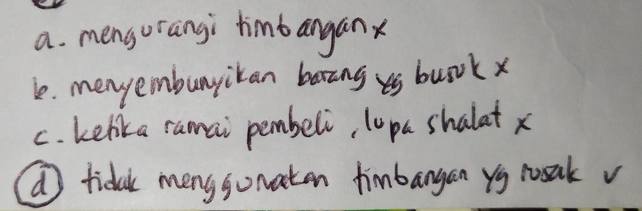 a. mengurangi timbangan x
b. menyembunyikan barang yg busuk x
c. ketika ramai pembeli, lupa shalat x
d tidak menggunakan timbangan yg rusak ✓